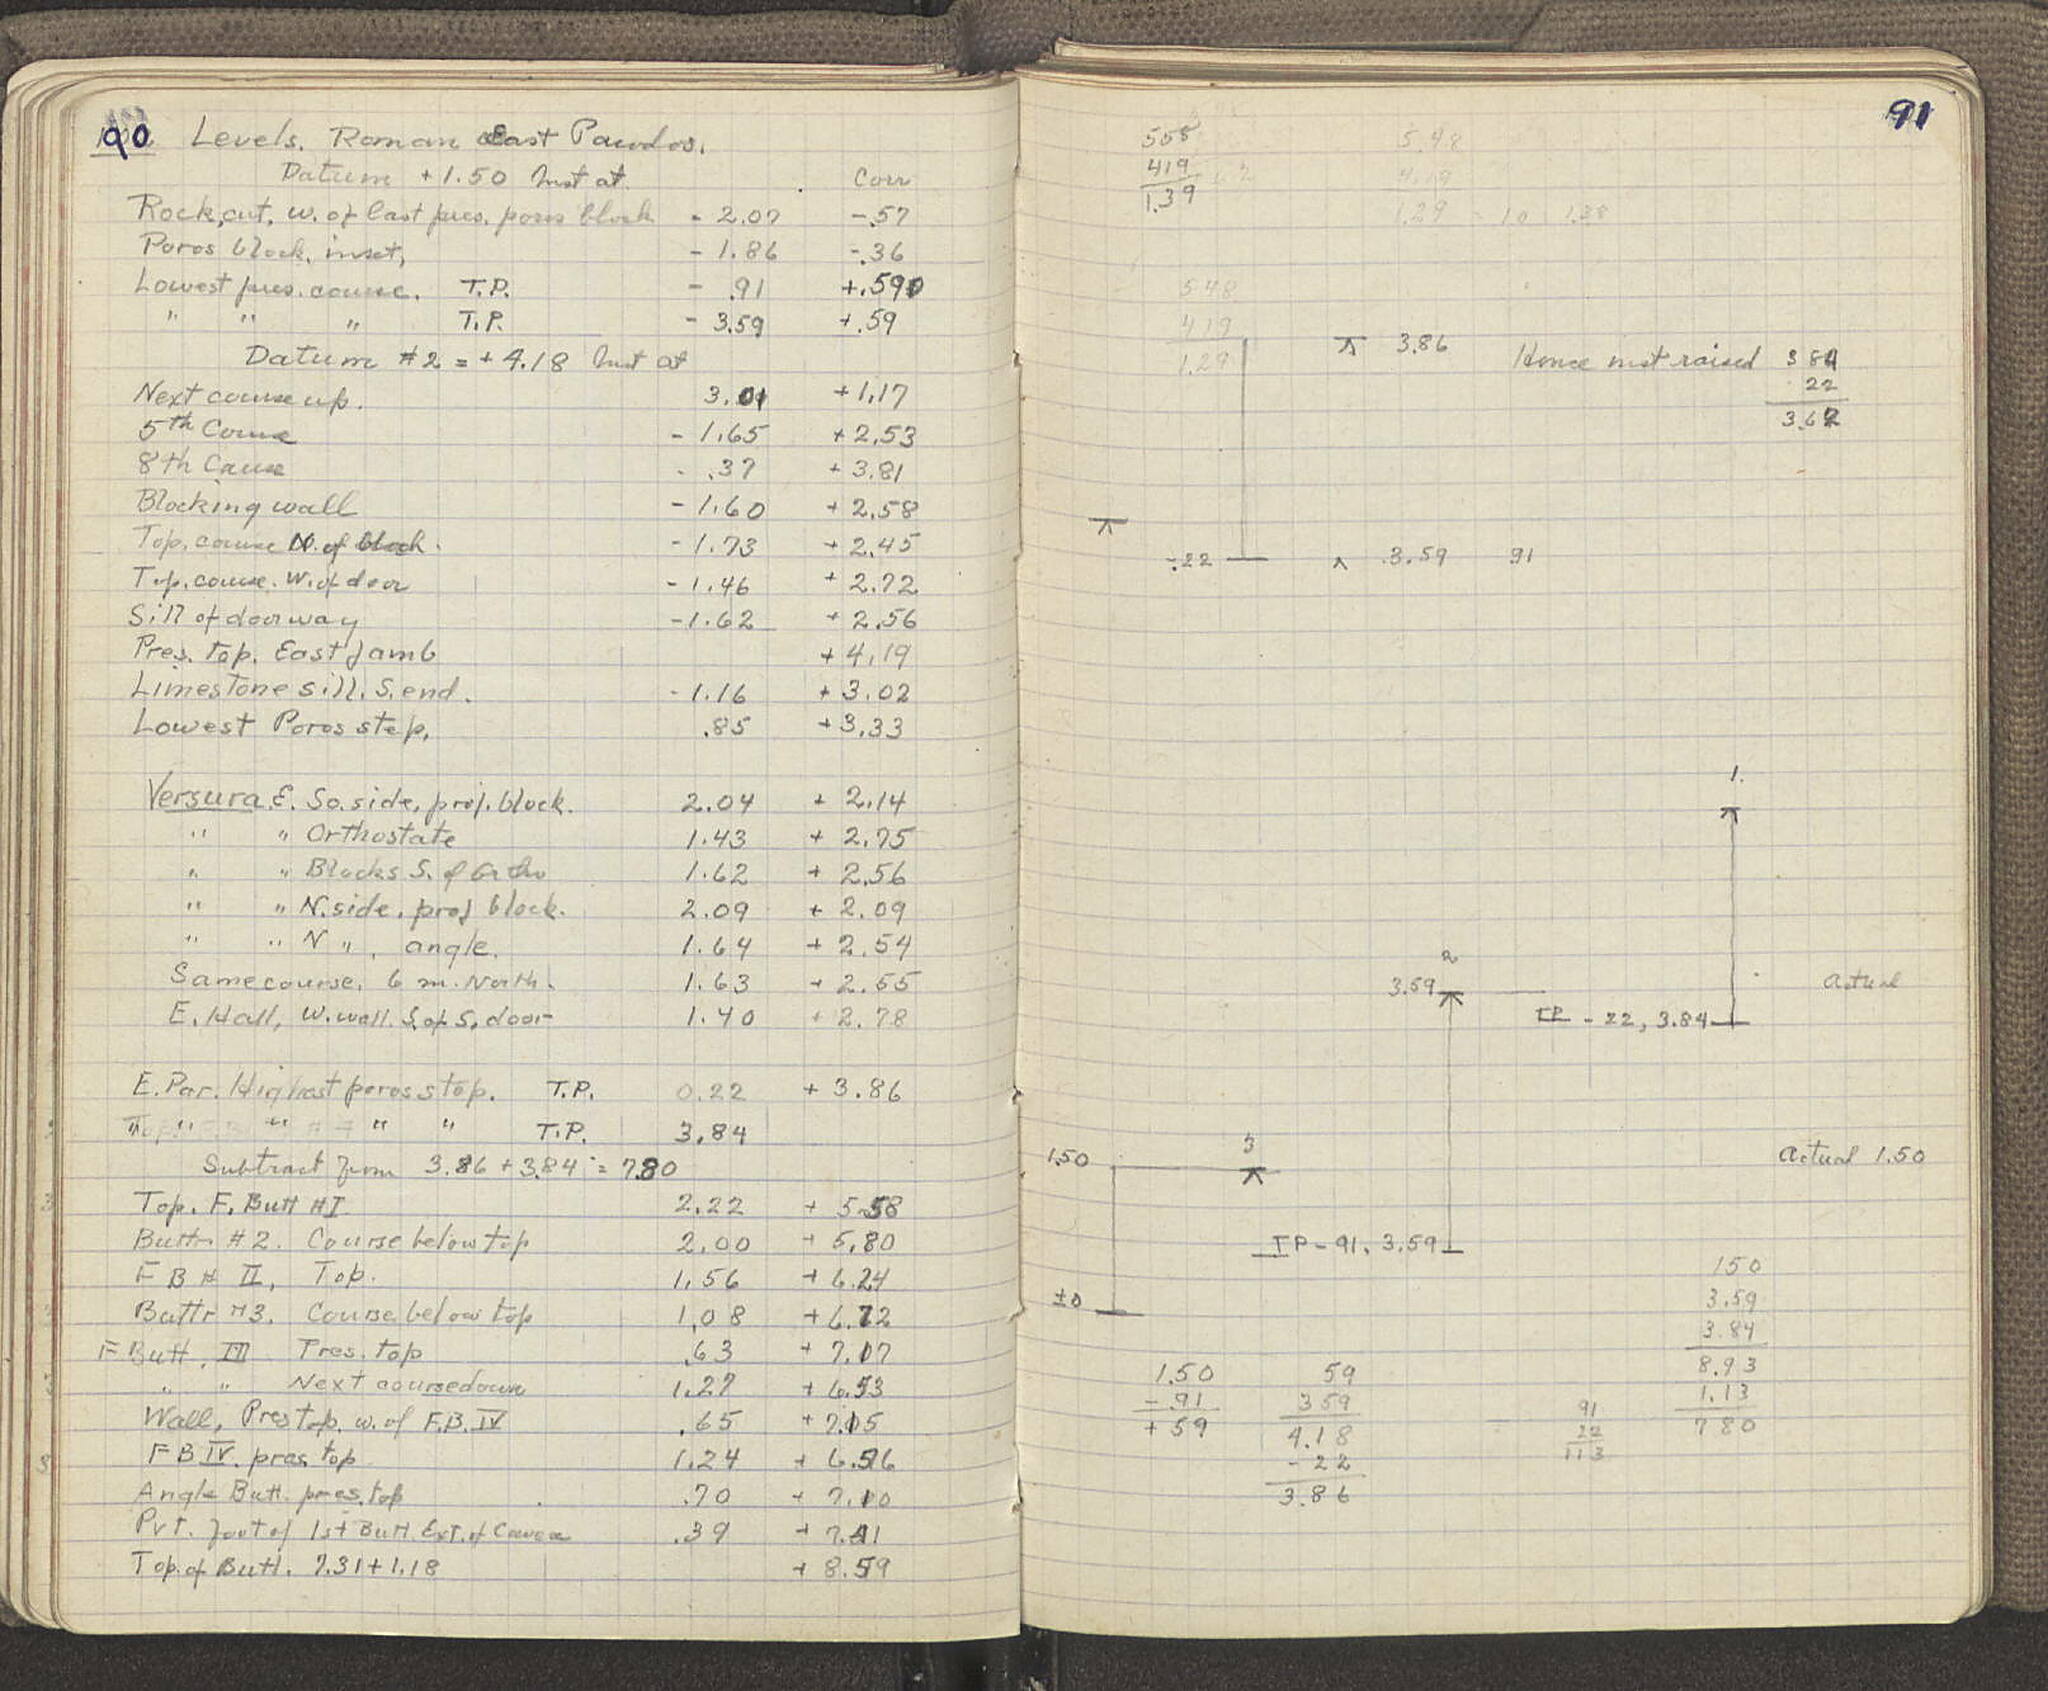 90 Levels. Roman East Parodos.
Datum +1.50 Inst at. Corr
Rock, cut, w. of last pres. poros block - 2.07 -.57
Poros block, inset, - 1.86 -.36
Lowest pres. course. T.P. - .91 +.59
" " " T.P. - 3.59 +.59
Datum #2 = +4.18 Inst at
Next course up. 3.01 +1.17
5th Course - 1.65 +2.53
8th Course - .37 +3.81
Blocking wall - 1.60 +2.58
Top. course N. of block. - 1.73 +2.45
Top. course. W. of door - 1.46 +2.72
Sill of doorway -1.62 +2.56
Pres. top. East Jamb +4.19
Limestone sill. S. end. - 1.16 +3.02
Lowest Poros step. .85 +3.33
Versura. E. So. side, proj. block. 2.04 + 2.14
" " Orthostate 1.43 + 2.75
" " Blocks S. of Ortho 1.62 + 2.56
" " N. side, proj block. 2.09 + 2.09
" " N ", angle. 1.64 + 2.54
Same course, 6 m. North. 1.63 + 2.55
E. Hall, W. wall. S. of S. door 1.40 + 2.78
E. Par. Highest poros step. T.P. 0.22 + 3.86
" " " " " T.P. 3.84
Subtract from 3.86 + 3.84 = 7.80
Top. F. Butt #I 2.22 + 5.58
Buttr #2. Course below top 2.00 + 5.80
F B # II, Top. 1.56 + 6.24
Buttr #3. Course below top 1.08 + 6.72
F Butt. III Pres. top .63 + 7.17
" " Next course down 1.27 + 6.53
Wall, Pres top. w. of F.B. IV .65 + 7.15
F B IV. pres. top 1.24 + 6.56
Angle Butt. pres. top .70 + 7.10
Pvt. foot of 1st Butt. Ext. of Cavea .39 + 7.41
Top. of Butt. 7.31 + 1.18 + 8.59
91
558 5.48
419 4.19
1.39 1.29 10 1.38
548
419
1.29
3.86 Hence inst raised 384
22
3.62
-.22 3.59 91
1.
2
3.59 Actual
TP - 22, 3.84
3
1.50 Actual 1.50
TP - 91, 3.59
±0
150
3.59
3.84
8.93
1.13
780
1.50
- 91
+ 59
59
359
4.18
- 22
3.86
91
22
113